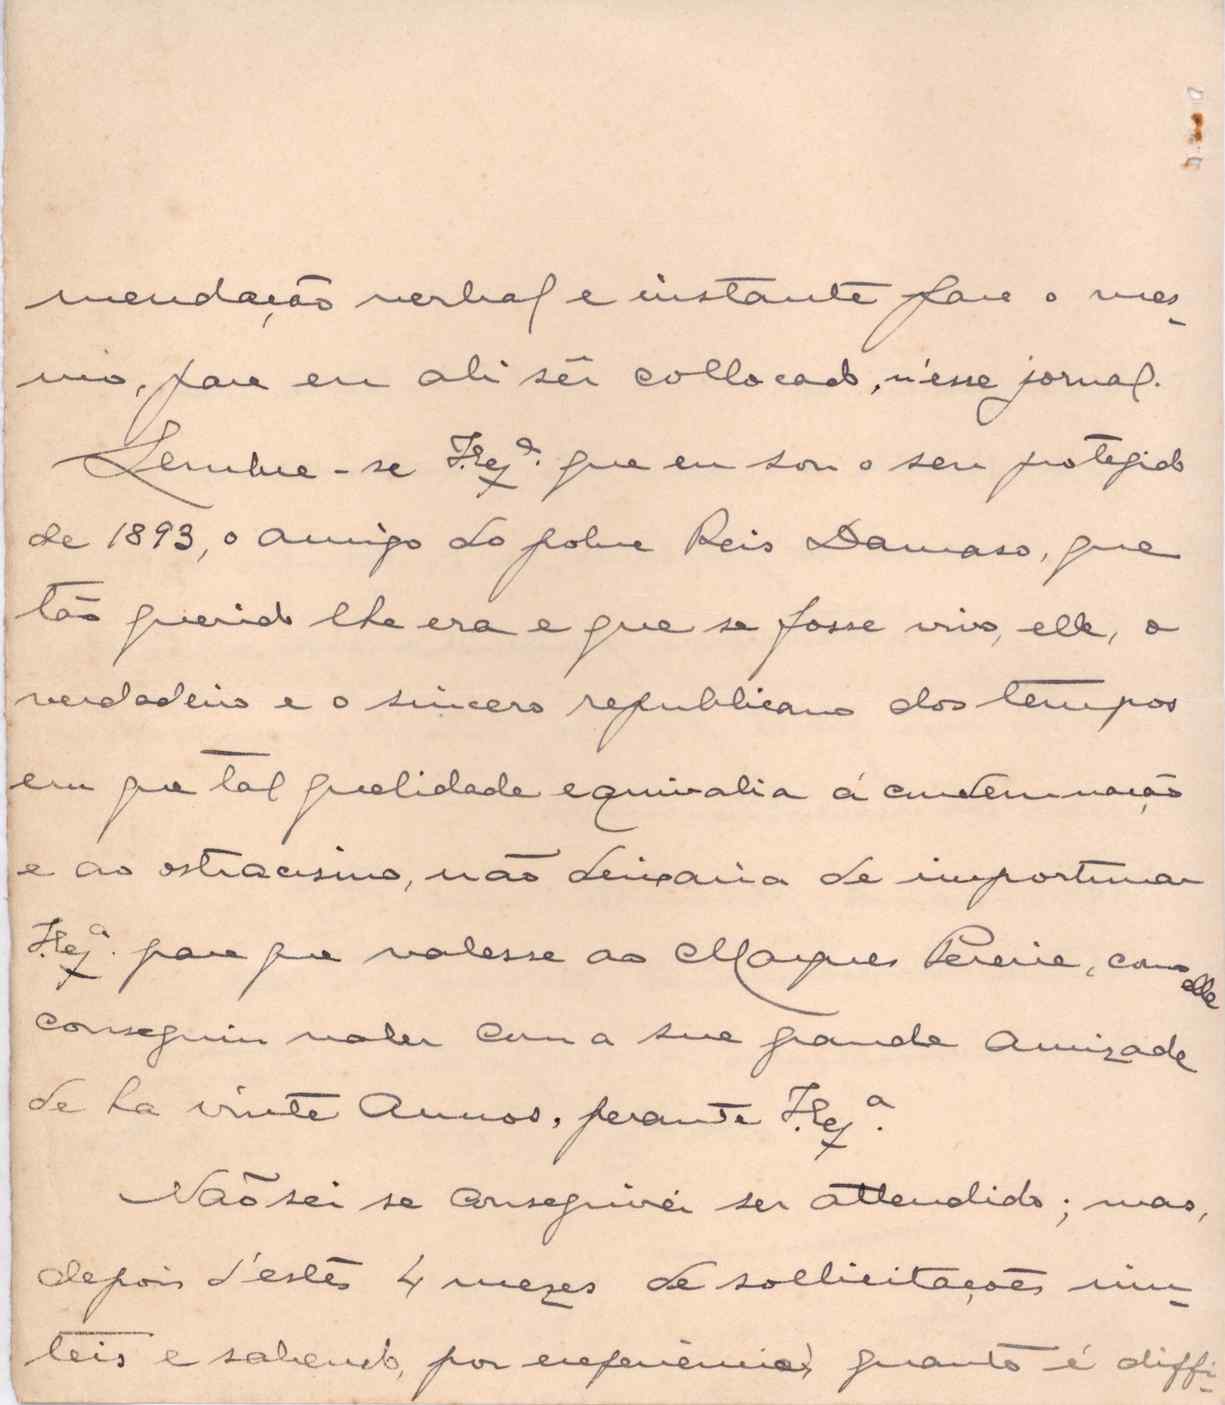 mendação verbal e instante para o mes-
mo, para eu ali sêr collocado, n'esse jornal.
Lembre-se V. Ex.ª que eu sou o seu protegido
de 1893, o amigo do pobre Reis Damaso, que
tão querido lhe era e que se fosse vivo, elle, o
verdadeiro e o sincero republicano dos tempos
em que tal qualidade equivalia á condemnação
e ao ostracismo, não deixaria de importunar
V. Ex.ª para que valesse ao Marques Pereira, como elle
conseguiu valer com a sua grande amizade
de ha vinte annos, perante V. Ex.ª.
Não sei se conseguirei ser attendido; mas,
depois d'estes 4 mezes de sollicitações inu-
teis e sabendo, por experiencia, quanto é diffi-